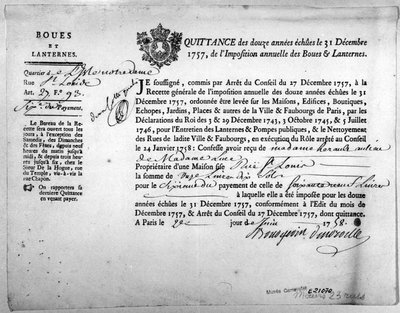 BOUES
ET
LANTERNES.
Quartier
Rue St. Louis
Art. 27. Fo. 93.
Payement.
Le Bureau de la Recette sera ouvert tous les jours, à l'exception des Samedis, des Dimanches & des Fêtes, depuis neuf heures du matin jusqu'à midi, & depuis trois heures jusqu'à six, chez le Sieur De la Hogue, rue du Temple, vis-à-vis la rue Chapon.
On rapportera sa derniere Quittance en venant payer.
QUITTANCE des douze années échûes le 31 Décembre
1757, de l'Imposition annuelle des Boues & Lanternes.
JE soussigné, commis par Arrêt du Conseil du 27 Décembre 1757, à la
Recette générale de l'imposition annuelle des douze années échûes le 31
Décembre 1757, ordonnée être levée sur les Maisons, Edifices, Boutiques,
Echopes, Jardins, Places & autres de la Ville & Fauxbourgs de Paris, par les
Déclarations du Roi des 3 & 29 Décembre 1743, 3 Octobre 1745, & 5 Juillet
1746, pour l'Entretien des Lanternes & Pompes publiques, & le Nettoyement
des Rues de ladite Ville & Fauxbourgs, en exécution du Rôle arrêté au Conseil
le 24 Janvier 1758: Confesse avoir reçu de madame
de Madame Luce
Propriétaire d'une Maison sise Rue St. Louis
la somme de
pour le payement de celle de
à laquelle elle a été imposée pour les douze
années échûes le 31 Décembre 1757, conformément à l'Edit du mois de
Décembre 1757, & Arrêt du Conseil du 27 Décembre 1757, dont quittance.
A Paris le jour de Juin 1758.